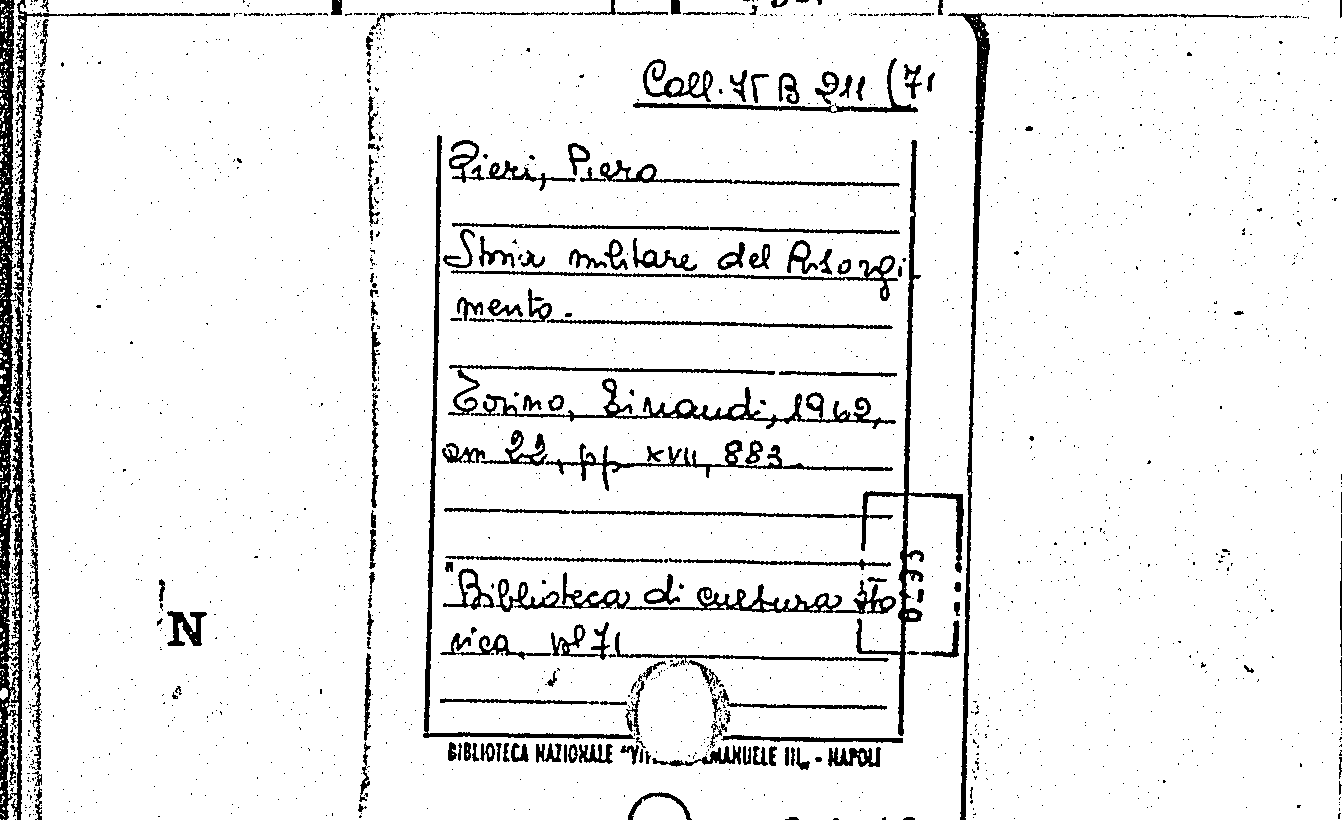 Coll. 75 B 211 (71
Pieri, Piero
Storia militare del Risorgi-
mento.
Torino, Einaudi, 1962,
cm 22, pp XVII, 883.
"Biblioteca di cultura sto
rica, vol 71
0-93
N
BIBLIOTECA NAZIONALE "VIT MANUELE III„ - NAPOLI